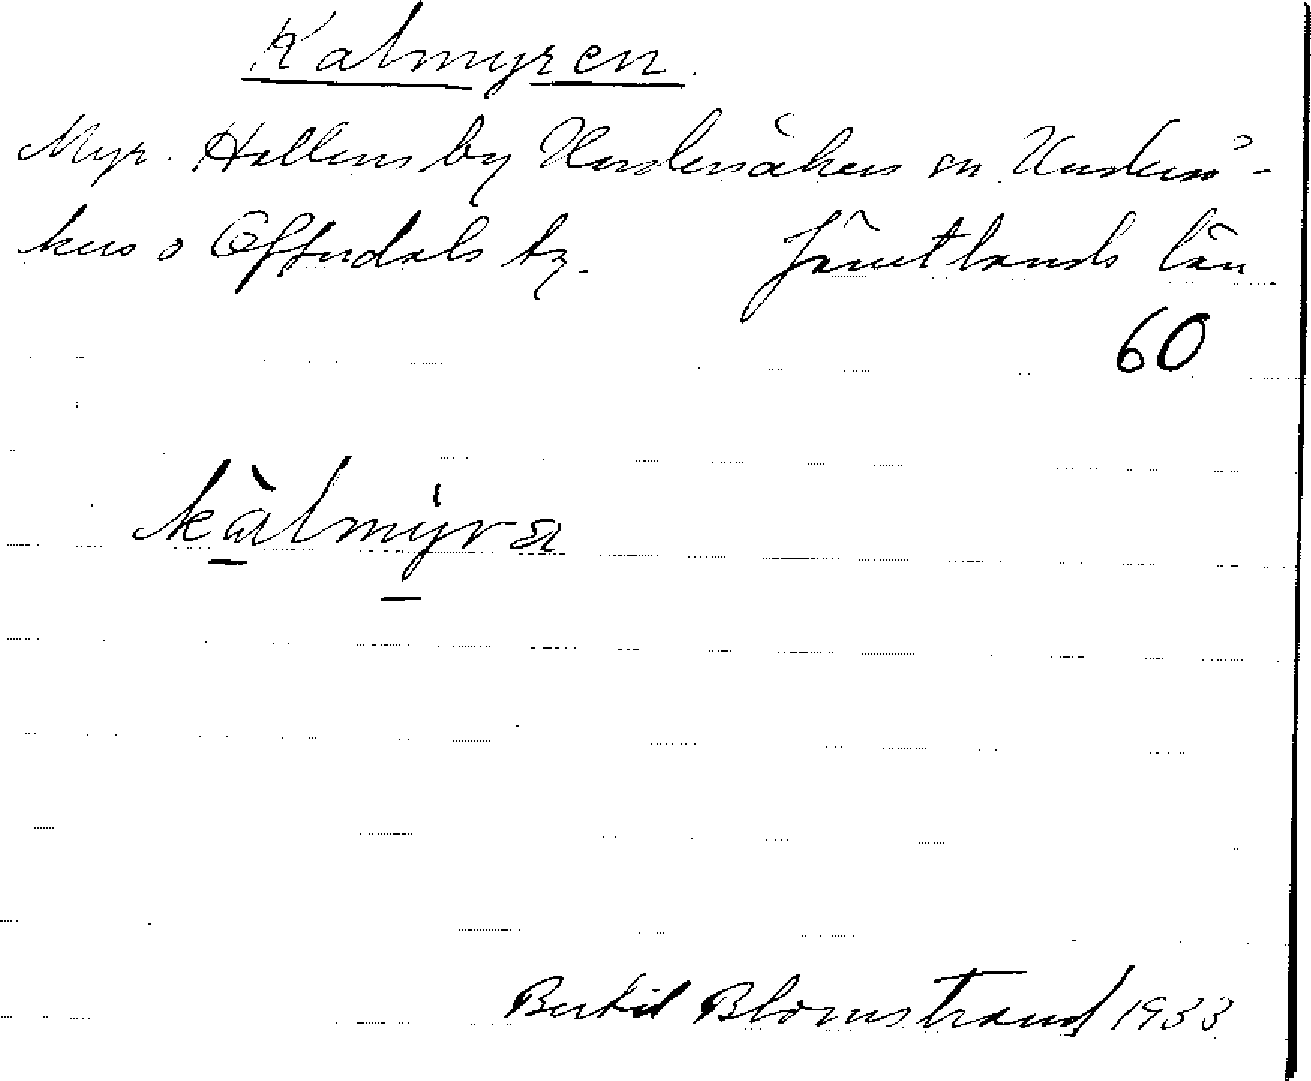 Kalmyren.
Myr. Hallens by Undersåkers sn Underså-
kers o Offerdals tg. Jämtlands län
60
kàlmýra
Bertil Blomstrand 1933